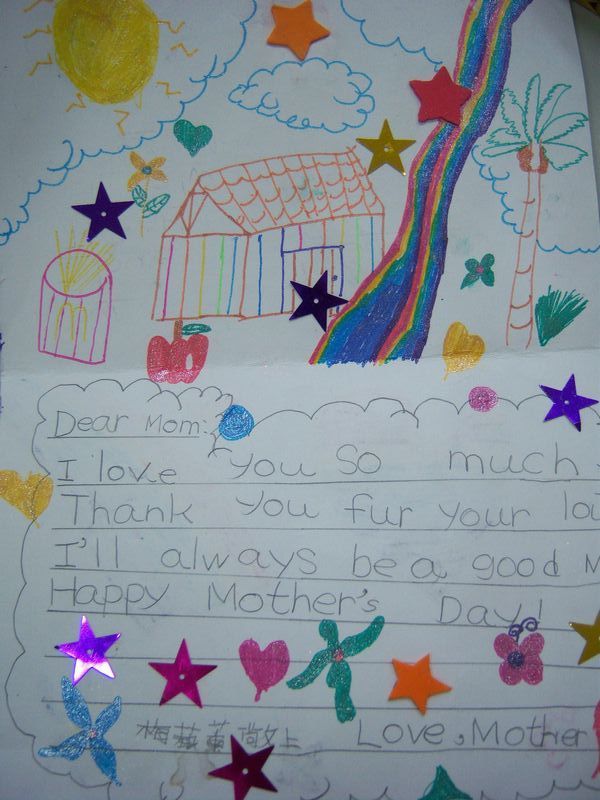 Dear Mom:
I love you so much
Thank you fur your
I'll always be a good
Happy Mother's Day!
敬上 Love, Mother